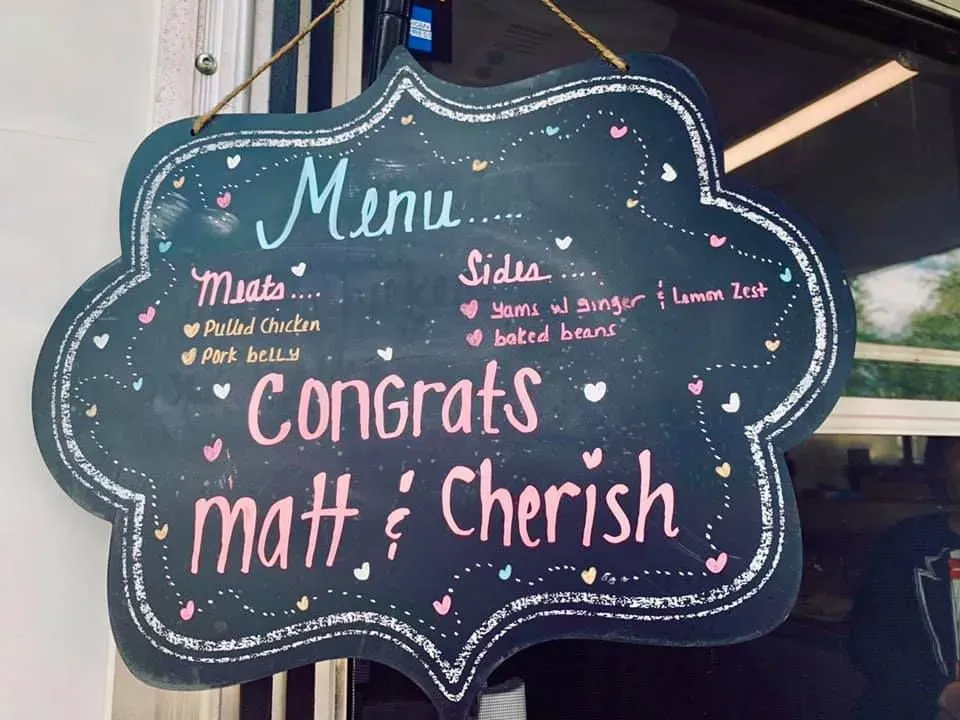 Menu.....
Meats....
Pulled Chicken
Pork belly
Sides....
yams w/ ginger & Lemon Zest
baked beans
Congrats
matt & Cherish